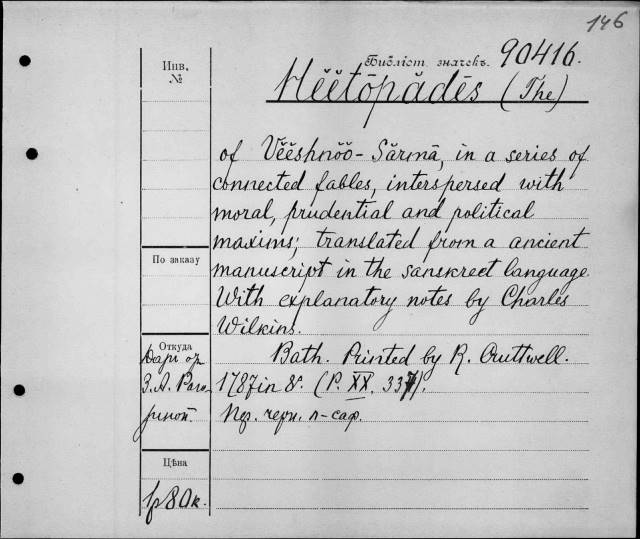 146
Инв. №
Библіот. значекъ. 90416.
Hĕĕtōpădĕs (The)
of Vĕĕshnŏŏ-Sărmā, in a series of
connected fables, interspersed with
moral, prudential and political
maxims; translated from a ancient
manuscript in the sanskreet language.
With explanatory notes by Charles
Wilkins.
Bath. Printed by R. Cruttwell.
1787 in 8º. (P. XX, 337).
По заказу
Откуда
Даръ от
З. А.
Цѣна
1р 80к.